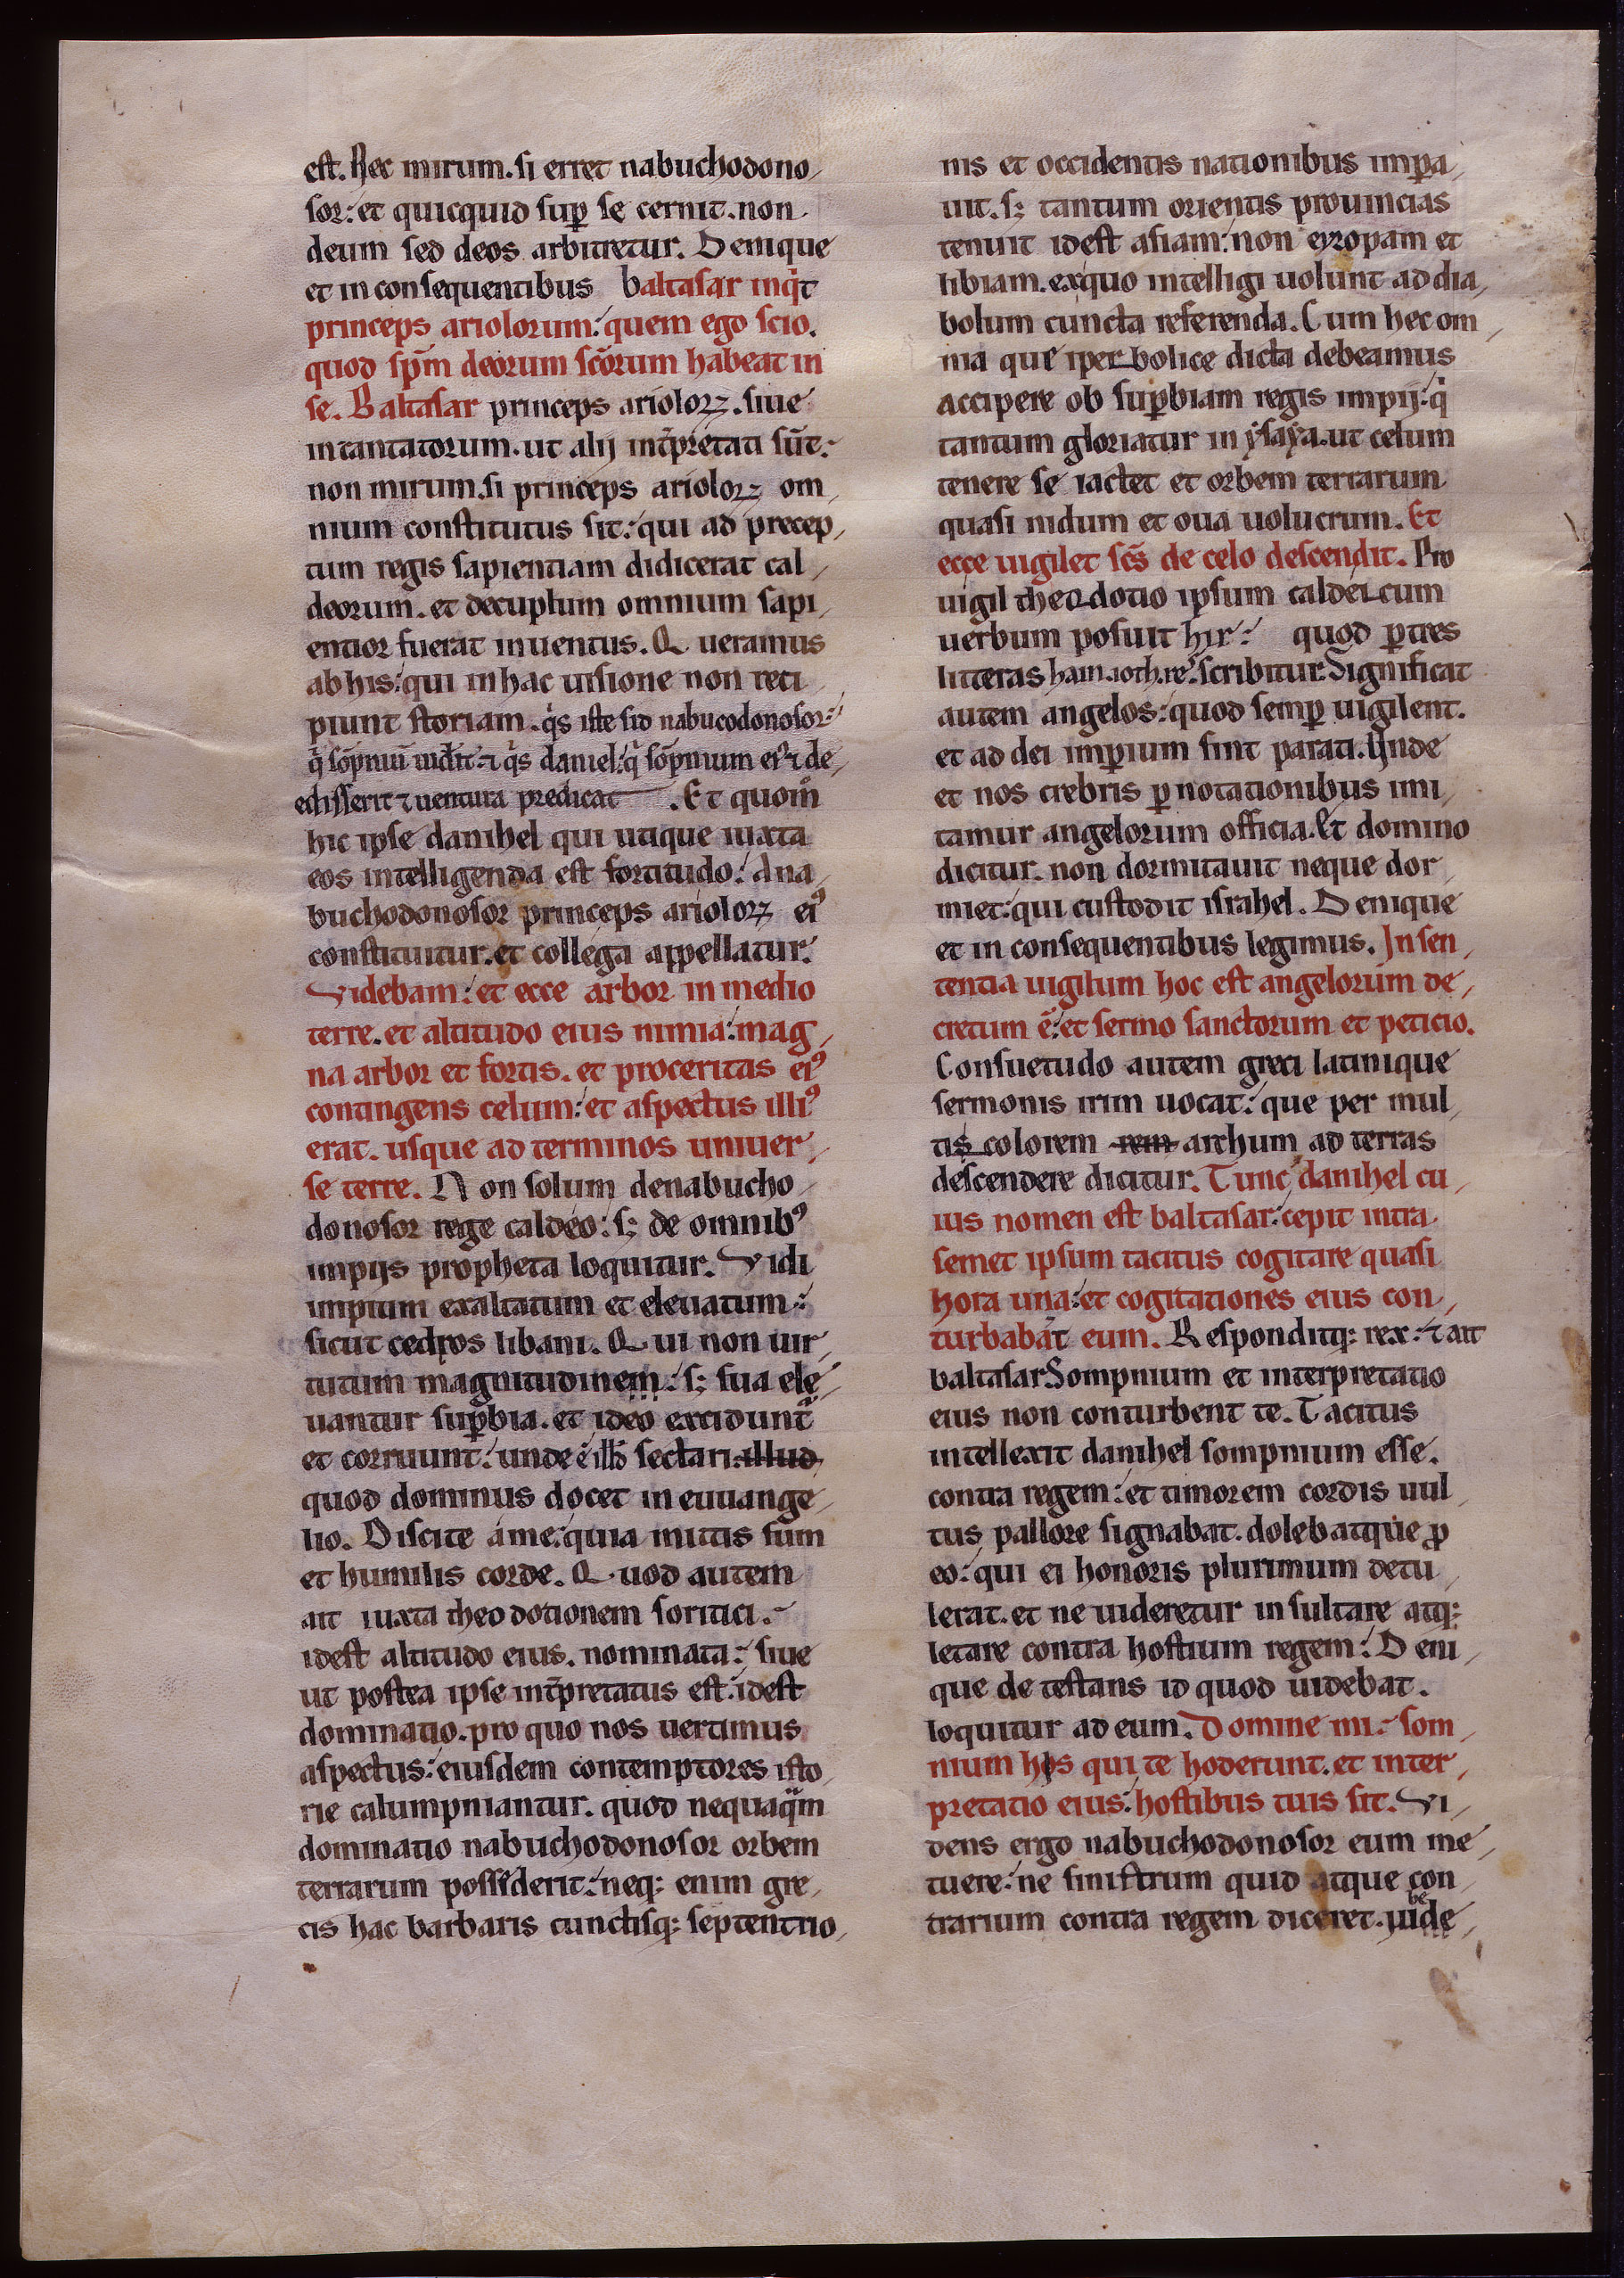 est. Nec mirum. si erret nabuchodono
sor: et quicquid sup̄ se cernit. non
deum sed deos arbitretur. Denique
et in consequentibus baltasar inq̇t
princeps ariolorum: quem ego scio.
quod sp̄m deorum sc̄orum habeat in
se. Baltasar princeps ariolorꝝ. siue
intantatorum. ut alij int̄pretati sūt.
non mirum. si princeps ariolorꝝ om
nium constitutus sit: qui ad precep
tum regis sapientiam didicerat cal
deorum. et decuplum omnium sapi
entior fuerat inuentus. Queramus
ab his: qui in hac uisione non reci
piunt storiam. q̇s iste sid nabucodonosor:
q̇ sōpniū uidit: ⁊ q̇s daniel: q̇ sōpnium eiꝰ ⁊ de
edisserit ⁊ uentura predicat. Et quom̊
hic ipse danihel qui utique iuxta
eos intelligenda est fortitudo: Ana
buchodonosor princeps ariolorꝝ eiꝰ
constituitur. et collega appellatur.
Videbam: et ecce arbor in medio
terre. et altitudo eius nimia: mag
na arbor et fortis. et proceritas eiꝰ
contingens celum: et aspectus illiꝰ
erat. usque ad terminos uniuer
se terre. Non solum denabucho
donosor rege caldeo: sꝫ de omnibꝰ
impijs propheta loquitur. Vidi
impium exaltatum et eleuatum:
sicut cedros libani. Qui non uir
tutum magnitudinem: sꝫ sua ele
uantur sup̄bia. et ideo excidunt
et corruunt: unde ē illđ sectari: illud
quod dominus docet in euuange
lio. Discite ame: quia mitis sum
et humilis corde. Quod autem
ait iuxta theodotionem soritici.
idest altitudo eius. nominata: siue
ut postea ipse int̄pretatus est. idest
dominatio. pro quo nos uertimus
aspectus: eiusdem contemptores isto
rie calumpniantur. quod nequaq̄m
dominatio nabuchodonosor orbem
terrarum possiderit: neqꝫ enim gre
cis hac barbaris cunctisqꝫ septentrio
nis et occidentis nationibus imꝑa
uit. sꝫ tantum orientis prouincias
tenuit idest asiam: non eyropam et
libiam. exquo intelligi uolunt ad dia
bolum cuncta referenda. Cum hec om
nia que iperbolice dicta debeamus
accipere ob suꝑbiam regis impij: q̇
tantum gloriatur in ẏsaẏa. ut celum
tenere se iactet et orbem terrarum
quasi nidum et oua uolucrum. Et
ecce uigilet sc̄s de celo descendit. Pro
uigil theodotio ipsum caldeicum
uerbum posuit hir: quod ꝑ tres
litteras ham. ioth. re. scribitur. Significat
autem angelos: quod semꝑ uigilent.
et ad dei imꝑium sint parati. Unde
et nos crebris ꝑnotationibus imi
tamur angelorum officia. Et domino
dicitur. non dormitauit neque dor
miet: qui custodit israhel. Denique
et in consequentibus legimus. In sen
tentia uigilum hoc est angelorum de
cretum ē: et sermo sanctorum et peticio.
Consuetudo autem greci latinique
sermonis irim uocat: que per mul
tis colorem rem archum ad terras
descendere dicitur. Tunc danihel cu
ius nomen est baltasar: cepit intra
semet ipsum tacitus cogitare quasi
hora una: et cogitationes eius con
turbabāt eum. Responditqꝫ rex: ⁊ ait
baltasar Sompnium et interpretatio
eius non conturbent te. Tacitus
intellexit danihel sompnium esse.
contra regem: et timorem cordis uul
tus pallore signabat. dolebatque ꝓ
eo: qui ei honoris plurimum detu
lerat. et ne uideretur insultare atqꝫ
letare contra hostium regem: Deni
que detestans id quod uidebat.
loquitur ad eum. Domine mi: som
nium his qui te hoderunt. et inter
pretatio eius: hostibus tuis sit. Vi
dens ergo nabuchodonosor eum me
tuere: ne sinistrum quid atque con
trarium contra regem diceret. uide
be